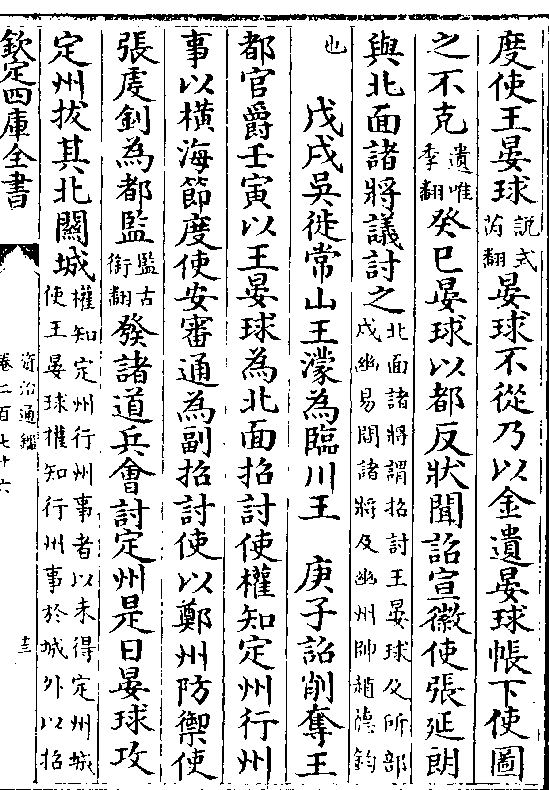 度使王晏球說式芮翻晏球不從乃以金遺晏球帳下使圖
之不克遺唯季翻癸巳晏球以都反狀聞詔宣徽使張延朗
與北面諸將議討之北面諸將謂招討王晏球及所部戍幽易閒諸將及幽州帥趙德鈞
也　戊戌吳徙常山王濛為臨川王　庚子詔削奪王
都官爵壬寅以王晏球為北面招討使權知定州行州
事以橫海節度使安審通為副招討使以鄭州防禦使
張虔釗為都監監古銜翻發諸道兵會討定州是日晏球攻
定州拔其北關城權知定州行州事者以未得定州城使王晏球權知行州事於城外以招
欽定四庫全書
資治通鑑
卷二百七十六